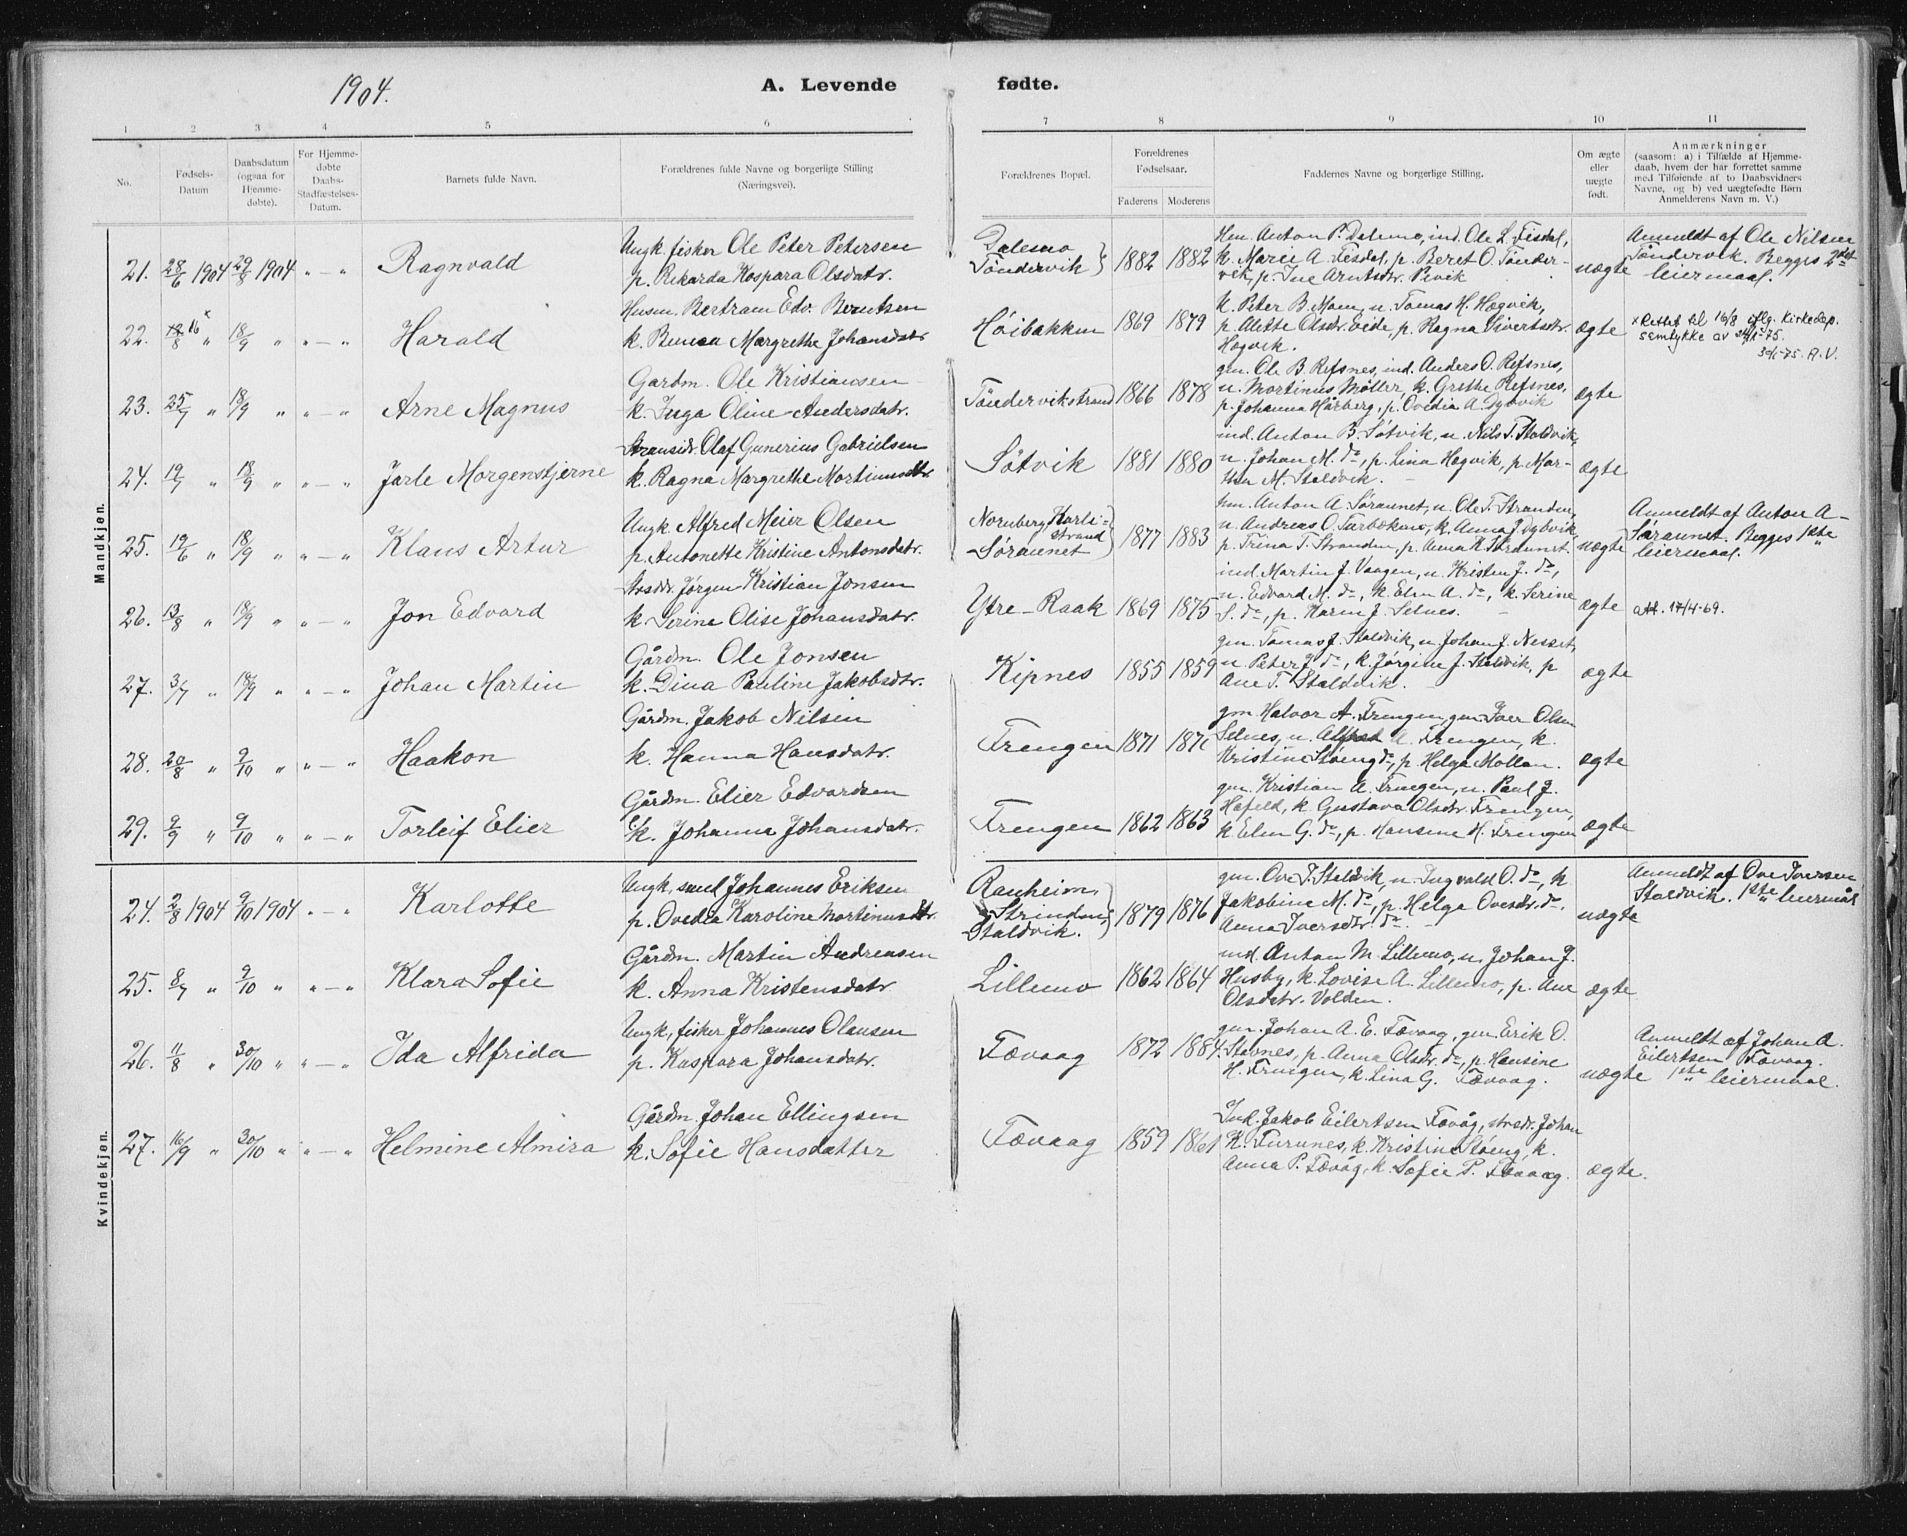 1904.
A. Levende fødte.
1 2 3 4 5 6 7 8 9 10 11
No.
Fødsels-
Datum
Daabsdatum
(ogsaa for
Hjemme-
døbte).
For Hjemme-
døbte
Daabs-
Stadfæstelses-
Datum.
Barnets fulde Navn.
Forældrenes fulde Navne og borgerlige Stilling
(Næringsvei).
Forældrenes Bopæl.
Forældrenes
Fødselsaar.
Faderens Moderens
Faddernes Navne og borgerlige Stilling.
Om ægte
eller
uægte
født.
Anmærkninger
(saasom: a) i Tilfælde af Hjemme-
daab, hvem der har forrettet samme
med Tilføiende af to Daabsvidners
Navne, og b) ved uægtefødte Børn
Anmelderens Navn m. V.)
Mandkjøn.
21. 28/6 1904 29/8 1904 „ — „ Ragnvald
Ungk. fisker Ole Peter Petersen
p. Rikarda Kaspara Olsdatr.
Dalemo
Tøndervik
1882 1882
Hm. Anton P. Dalemo, ind. Ole L. Fisdal,
k. Marie A. Fisdal, p. Beret O. Tønder-
vik, p. Ine Arntsdtr. Pivik
uægte
Anmeldt af Ole Nilsen
Tøndervik. Begges 2det
leiermaal.
22. 18/8 16 x „ 18/9 „ „ — „ Harald
Husm. Bertram Edv. Berntsen
k. Margrethe Johansdatr
Høibakken 1869 1879
k. Peter B. Moen, u. Tomas H. Hegvik,
p. Alette Olsdtr. Veide, p. Ragna Sivertsdtr.
Hegvik.
ægte
x Rettet til 16/8 iflg. Kirkedep.
samtykke av
A. V.
23. 25/7 „ 18/9 „ „ — „ Arne Magnus
Gardm. Ole Kristiansen
k. Inga Oline Andersdatr.
Tøndervikstrand 1866 1878
gm. Ole B. Refsnes, ind. Anders O. Refsnes,
u. Martinus Møller, k. Grethe Refsnes,
p. Johanna Hårberg, p. Ovedia A. Dybvik
ægte
24. 19/7 „ 18/9 „ „ — „ Jarle Morgenstjerne
Stransidr. Olaf Gunerius Gabrielsen
k. Ragna Margrethe Martinusdtr
Søtvik 1881 1880
ind. Anton B. Søtvik, u. Nils T. Staldvik,
u. Johan M. do, p. Lina Hegvik, p. Mar-
the M. Staldvik.
ægte
25. 19/6 „ 18/9 „ „ — „ Klaus Artur
Ungk. Alfred Meier Olsen
p. Antonette Kristine Antonsdatr.
Nornberg Karli-
strand
Søraunet
1877 1883
hm. Anton A. Søraunet, u. Ole T. Stranden,
u. Andreas O. Turbekmo, k. Anna J. Dybvik,
p. Trina T. Stranden, p. Anna K. Søraunet.
uægte
Anmeldt af Anton A-
Søraunet. Begges 1ste
leiermaal.
26. 13/8 „ 18/9 „ „ — „ Jon Edvard
Jørgen Kristian Jonsen
k. Serine Olise Johansdatr.
Ytre-Raak 1869 1875
ind. Martin J. Vaagen, u. Kristen J. do,
u. Edvard M. do, k. Elen A. do, k. Serine
S. do, p. Karen J. Selnes.
ægte
att. 17/4-69.
27. 3/7 „ 18/9 „ „ — „ Johan Martin
Gårdm. Ole Jonsen
k. Dina Pauline Jakobsdtr.
Kipnes 1855 1859
gm. Tomas J. Staldvik, u. Johan J. Nesset,
u. Peter J. do, k. Jørgine J. Staldvik, p
Ane T. Staldvik.
ægte
28. 20/8 „ 9/10 „ „ — „ Haakon
Gårdm. Jakob Nilsen
k. Hanna Hansdatr.
Frengen 1871
gm Halvor A. Frengen, gm. Iver Olsen
Selnes, u. A. Frengen, k.
Kristine Støeng do, p. Helga Mollan.
ægte
29. 9/9 „ 9/10 „ „ — „ Torleif Elier
Gårdm. Elier Edvardsen
k. Johanna Johansdatr.
Frengen 1862 1863
gm. Kristian A. Frengen, u. Paul J.
Hafeld, k. Gustava Olsdtr. Frengen,
k. Elen G. do, p. Hansine H. Frengen
ægte
Kvindekjøn.
24. 2/8 1904 9/10 1904 „ — „ Karlotte
Ungk. smed Johannes Eriksen
p. Ovedia Karoline Martinusdtr.
Ranheim,
Strinden
Staldvik.
1879 1876
gm. Ove I. Staldvik, u. Ingvald O. do, k
Jakobine M. do, p. Helga Ovesdtr. do.
Anna Iversdtr. do.
uægte
Anmeldt af Ove Iversen
Staldvik. 1ste leiermål
25. 8/7 „ 9/10 „ „ — „ Klara Sofie
Gårdm. Martin Andreasen
k. Anna Kristensdatr
Lillemo 1862 1864
ind. Anton M. Lillemo, u. Johan J.
Husby, k. Lovise A. Lillemo, p. Ane
Olsdatr. Volden.
ægte
26. 11/8 „ 30/10 „ „ — „ Ida Alfrida
Ungk, fisker Johannes Olausen
p. Kaspara Johansdatr.
Fævaag 1872 1884.
gm. Johan A. E. Fævaag, gm. Erik O.
Stavnes, p. Anna Olsdtr. do, p. Hansine
H. Frengen, k. Lina G. Fævaag.
uægte
Anmeldt af Johan A.
Eilertsen Fævaag.
1ste leiermaal.
27. 16/9 „ 30/10 „ „ — „ Helmine Almira
Gårdm. Johan Ellingsen
k. Sofie Hansdatter
Fævaag 1859 1861
Ink. Jakob Eilertsen Fævåg, stredr. Johan
K. Furunes, k. Kristine Støeng, k.
Anna P. Fævåg, k. Sofie P. Fævaag.
ægte.